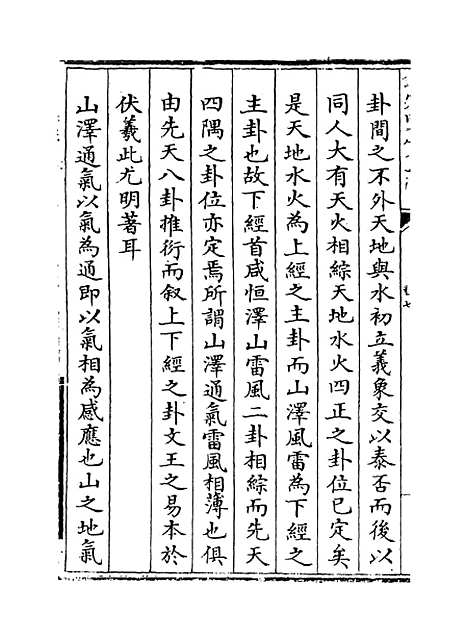 卦間之不外天地與水初立義象交以泰否而後以
同人大有天火相綜天地水火四正之卦位已定矣
是天地水火為上經之主卦而山澤風雷為下經之
主卦也故下經首咸恒澤山雷風二卦相綜而先天
四隅之卦位亦定焉所謂山澤通氣雷風相薄也俱
由先天八卦推衍而叙上下經之卦文王之易本於
伏羲此尤明著耳
山澤通氣以氣為通即以氣相為感應也山之地氣